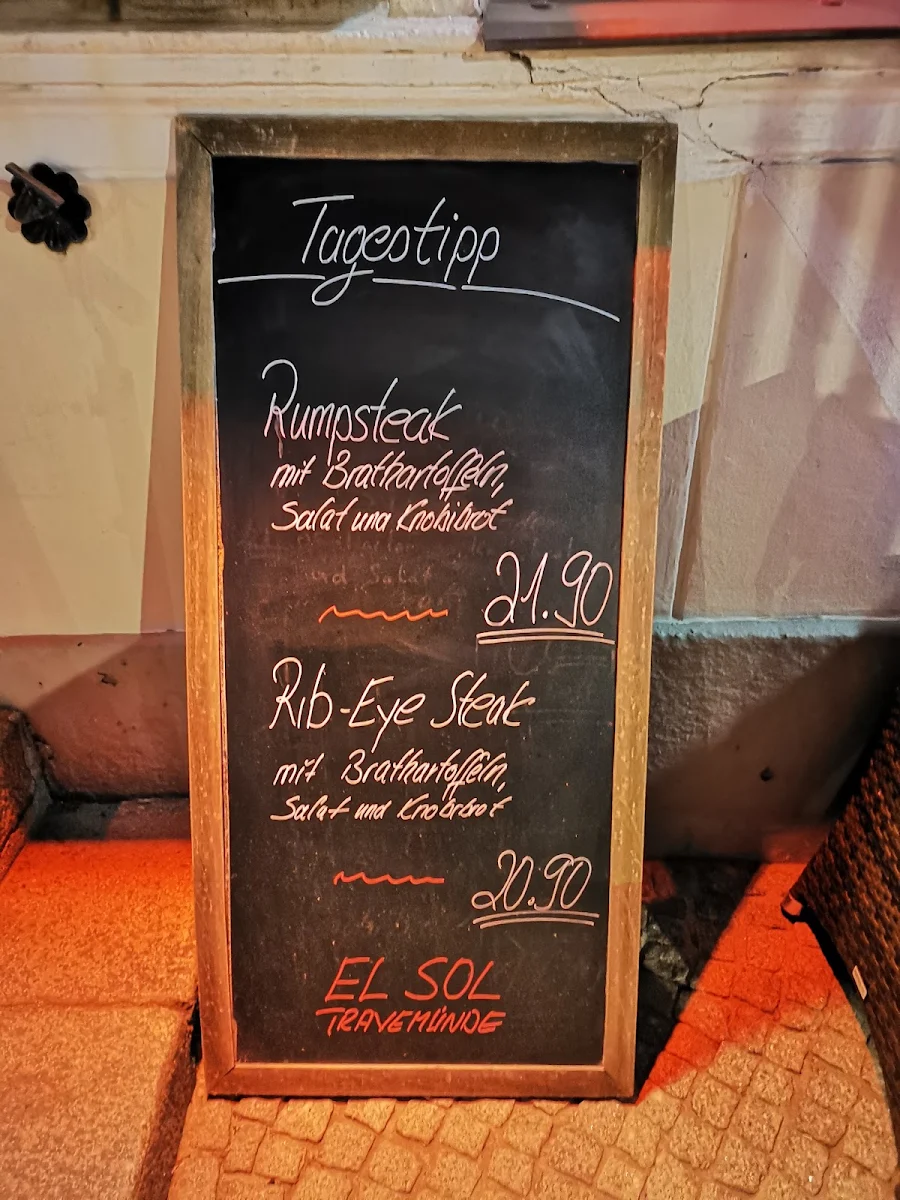 Tagestipp
Rumpsteak
mit Bratkartoffeln,
Salat und Knobibrot
21.90
Rib-Eye Steak
mit Bratkartoffeln,
Salat und Knobibrot
20.90
EL SOL
TRAVEMÜNDE